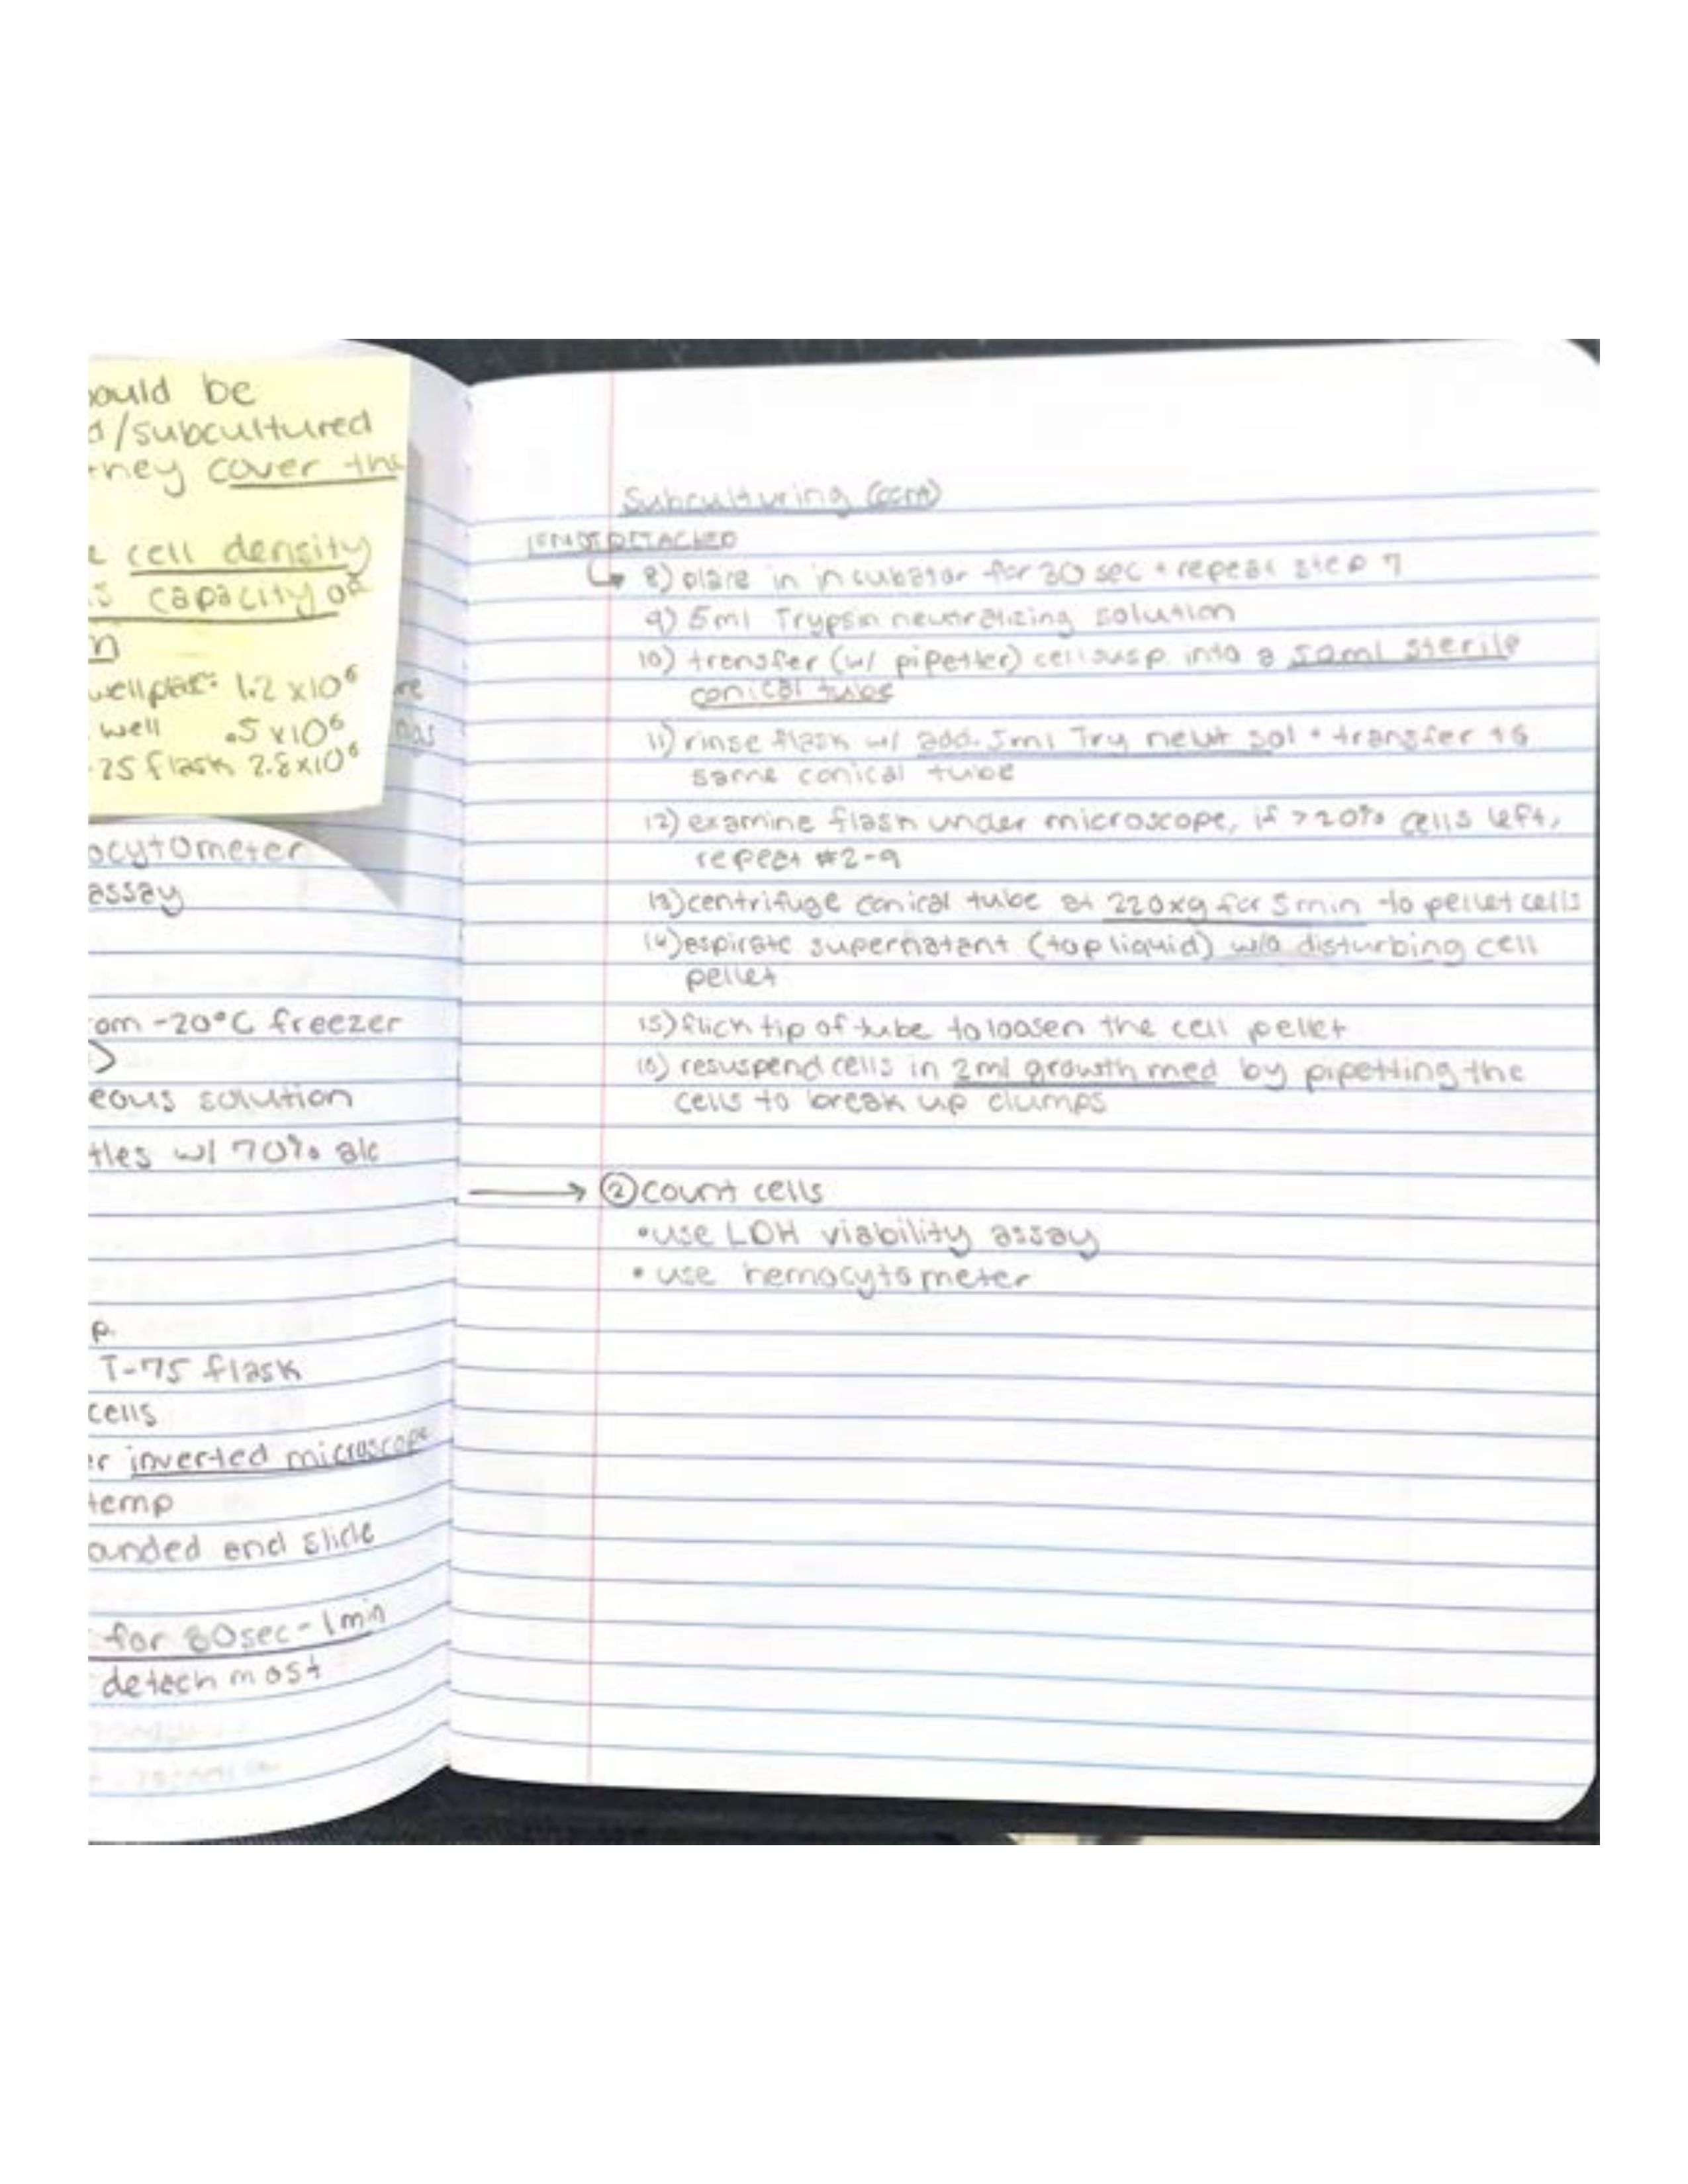 ould be
d/subcultured
they cover the
cell density
s capacity of
n
wellplate: 1.2 x10⁶
well .5 x10⁶
-25 flask 2.8x10⁶
re
ocytometer
assay
om -20°C freezer
eous solution
tles w/ 70% alc
p.
T-75 flask
cells
er inverted microscope
temp
ounded end slide
for 30sec-1min
detach most
Subculturing (cont)
IF NOT DETACHED
↳ 8) place in incubator for 30 sec + repeat step 7
9) 5ml Trypsin neutralizing solution
10) transfer (w/ pipetter) cell susp. into a 50ml sterile
conical tube
11) rinse flask w/ add. 5ml Try neut sol + transfer to
same conical tube
12) examine flask under microscope, if >20% cells left,
repeat #2-9
13) centrifuge conical tube at 220xg for 5min to pellet cells
14) aspirate supernatant (top liquid) w/o disturbing cell
pellet
15) flick tip of tube to loosen the cell pellet
16) resuspend cells in 2ml growth med by pipetting the
cells to break up clumps
→ ② count cells
• use LDH viability assay
• use hemocytometer